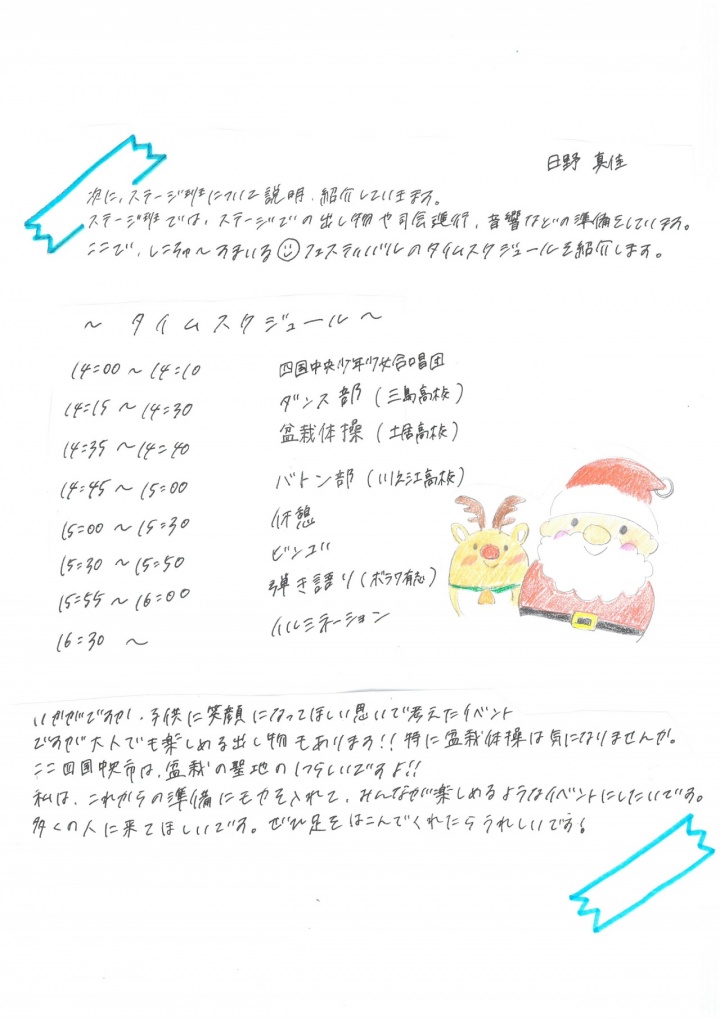 日野 真佳
次に、ステージ班について説明、紹介していきます。
ステージ班では、ステージでの出し物や司会進行、音響などの準備をしています。
ここで、しこちゅ〜すまいる☺フェスティバルのタイムスケジュールを紹介します。
〜 タイムスケジュール 〜
14:00 〜 14:10 四国中央少年少女合唱団
14:15 〜 14:30 ダンス部(三島高校)
14:35 〜 14:40 盆栽体操(土居高校)
14:45 〜 15:00 バトン部(川之江高校)
15:00 〜 15:30 休憩
15:30 〜 15:50 ビンゴ
15:55 〜 16:00 弾き語り(ボラ部有志)
16:30 〜 イルミネーション
いかがですか。子供に笑顔になってほしい思いで考えたイベント
ですが大人でも楽しめる出し物もあります!!特に盆栽体操は気になりませんか。
ここ四国中央市は、盆栽の聖地のひとつらしいですよ!!
私は、これからの準備にも力を入れて、みんなが楽しめるようなイベントにしたいです。
多くの人に来てほしいです。ぜひ足をはこんでくれたらうれしいです!